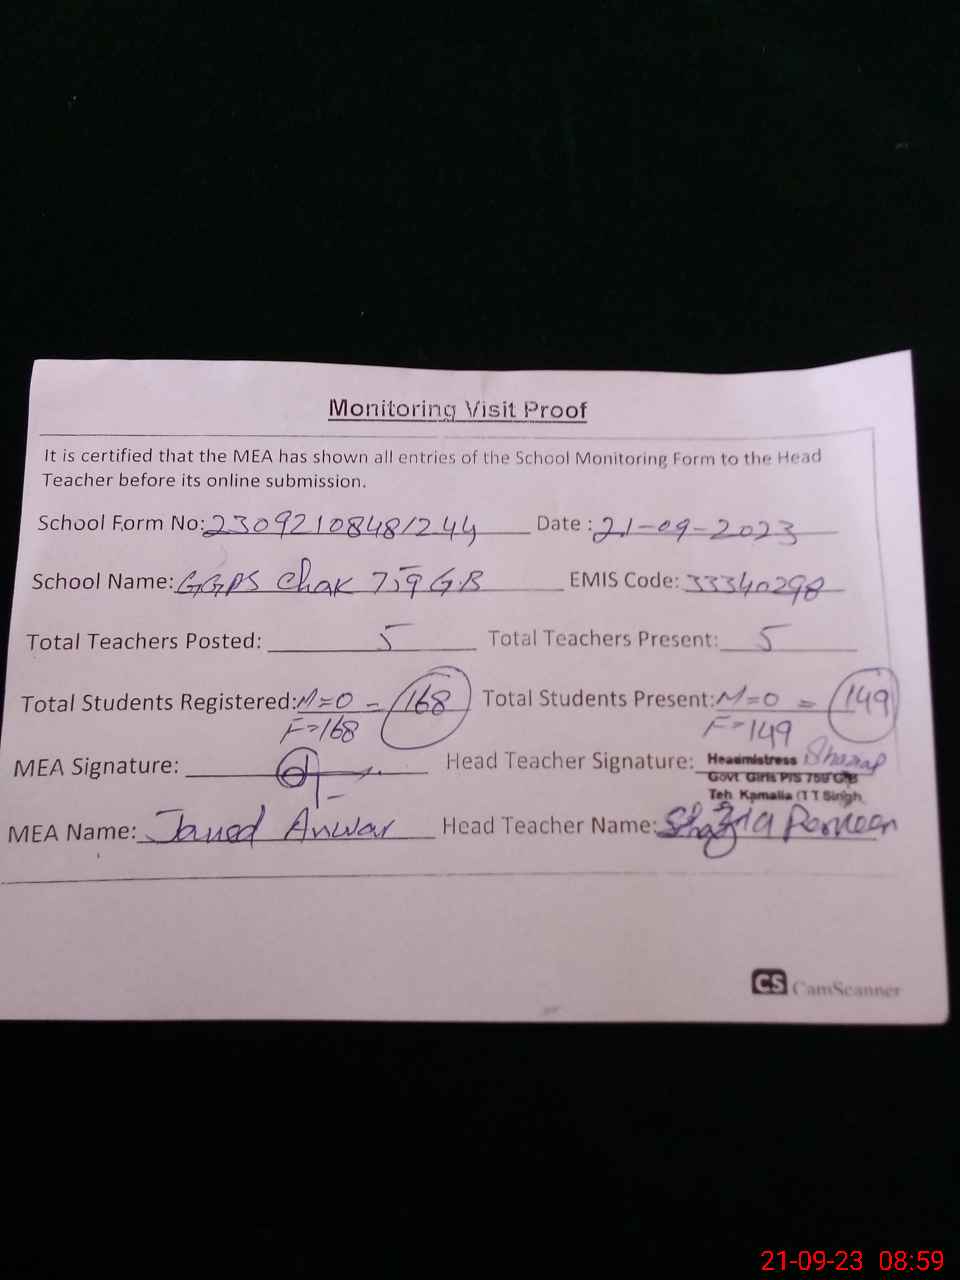 Monitoring Visit Proof
It is certified that the MEA has shown all entries of the School Monitoring Form to the Head
Teacher before its online submission.
School Form No: 23092108481244 Date : 21-09-2023
School Name: GGPS Chak 759 GB EMIS Code: 33340298
Total Teachers Posted: 5 Total Teachers Present: 5
Total Students Registered: M=0 = 168 Total Students Present: M=0 = 149
F=168 F=149
MEA Signature: Head Teacher Signature: Headmistress
Govt Girls P/S 759 G/B
Teh Kamalia (T T Singh)
MEA Name: Javed Anwar Head Teacher Name: Shazia Perveen
CS CamScanner
21-09-23 08:59